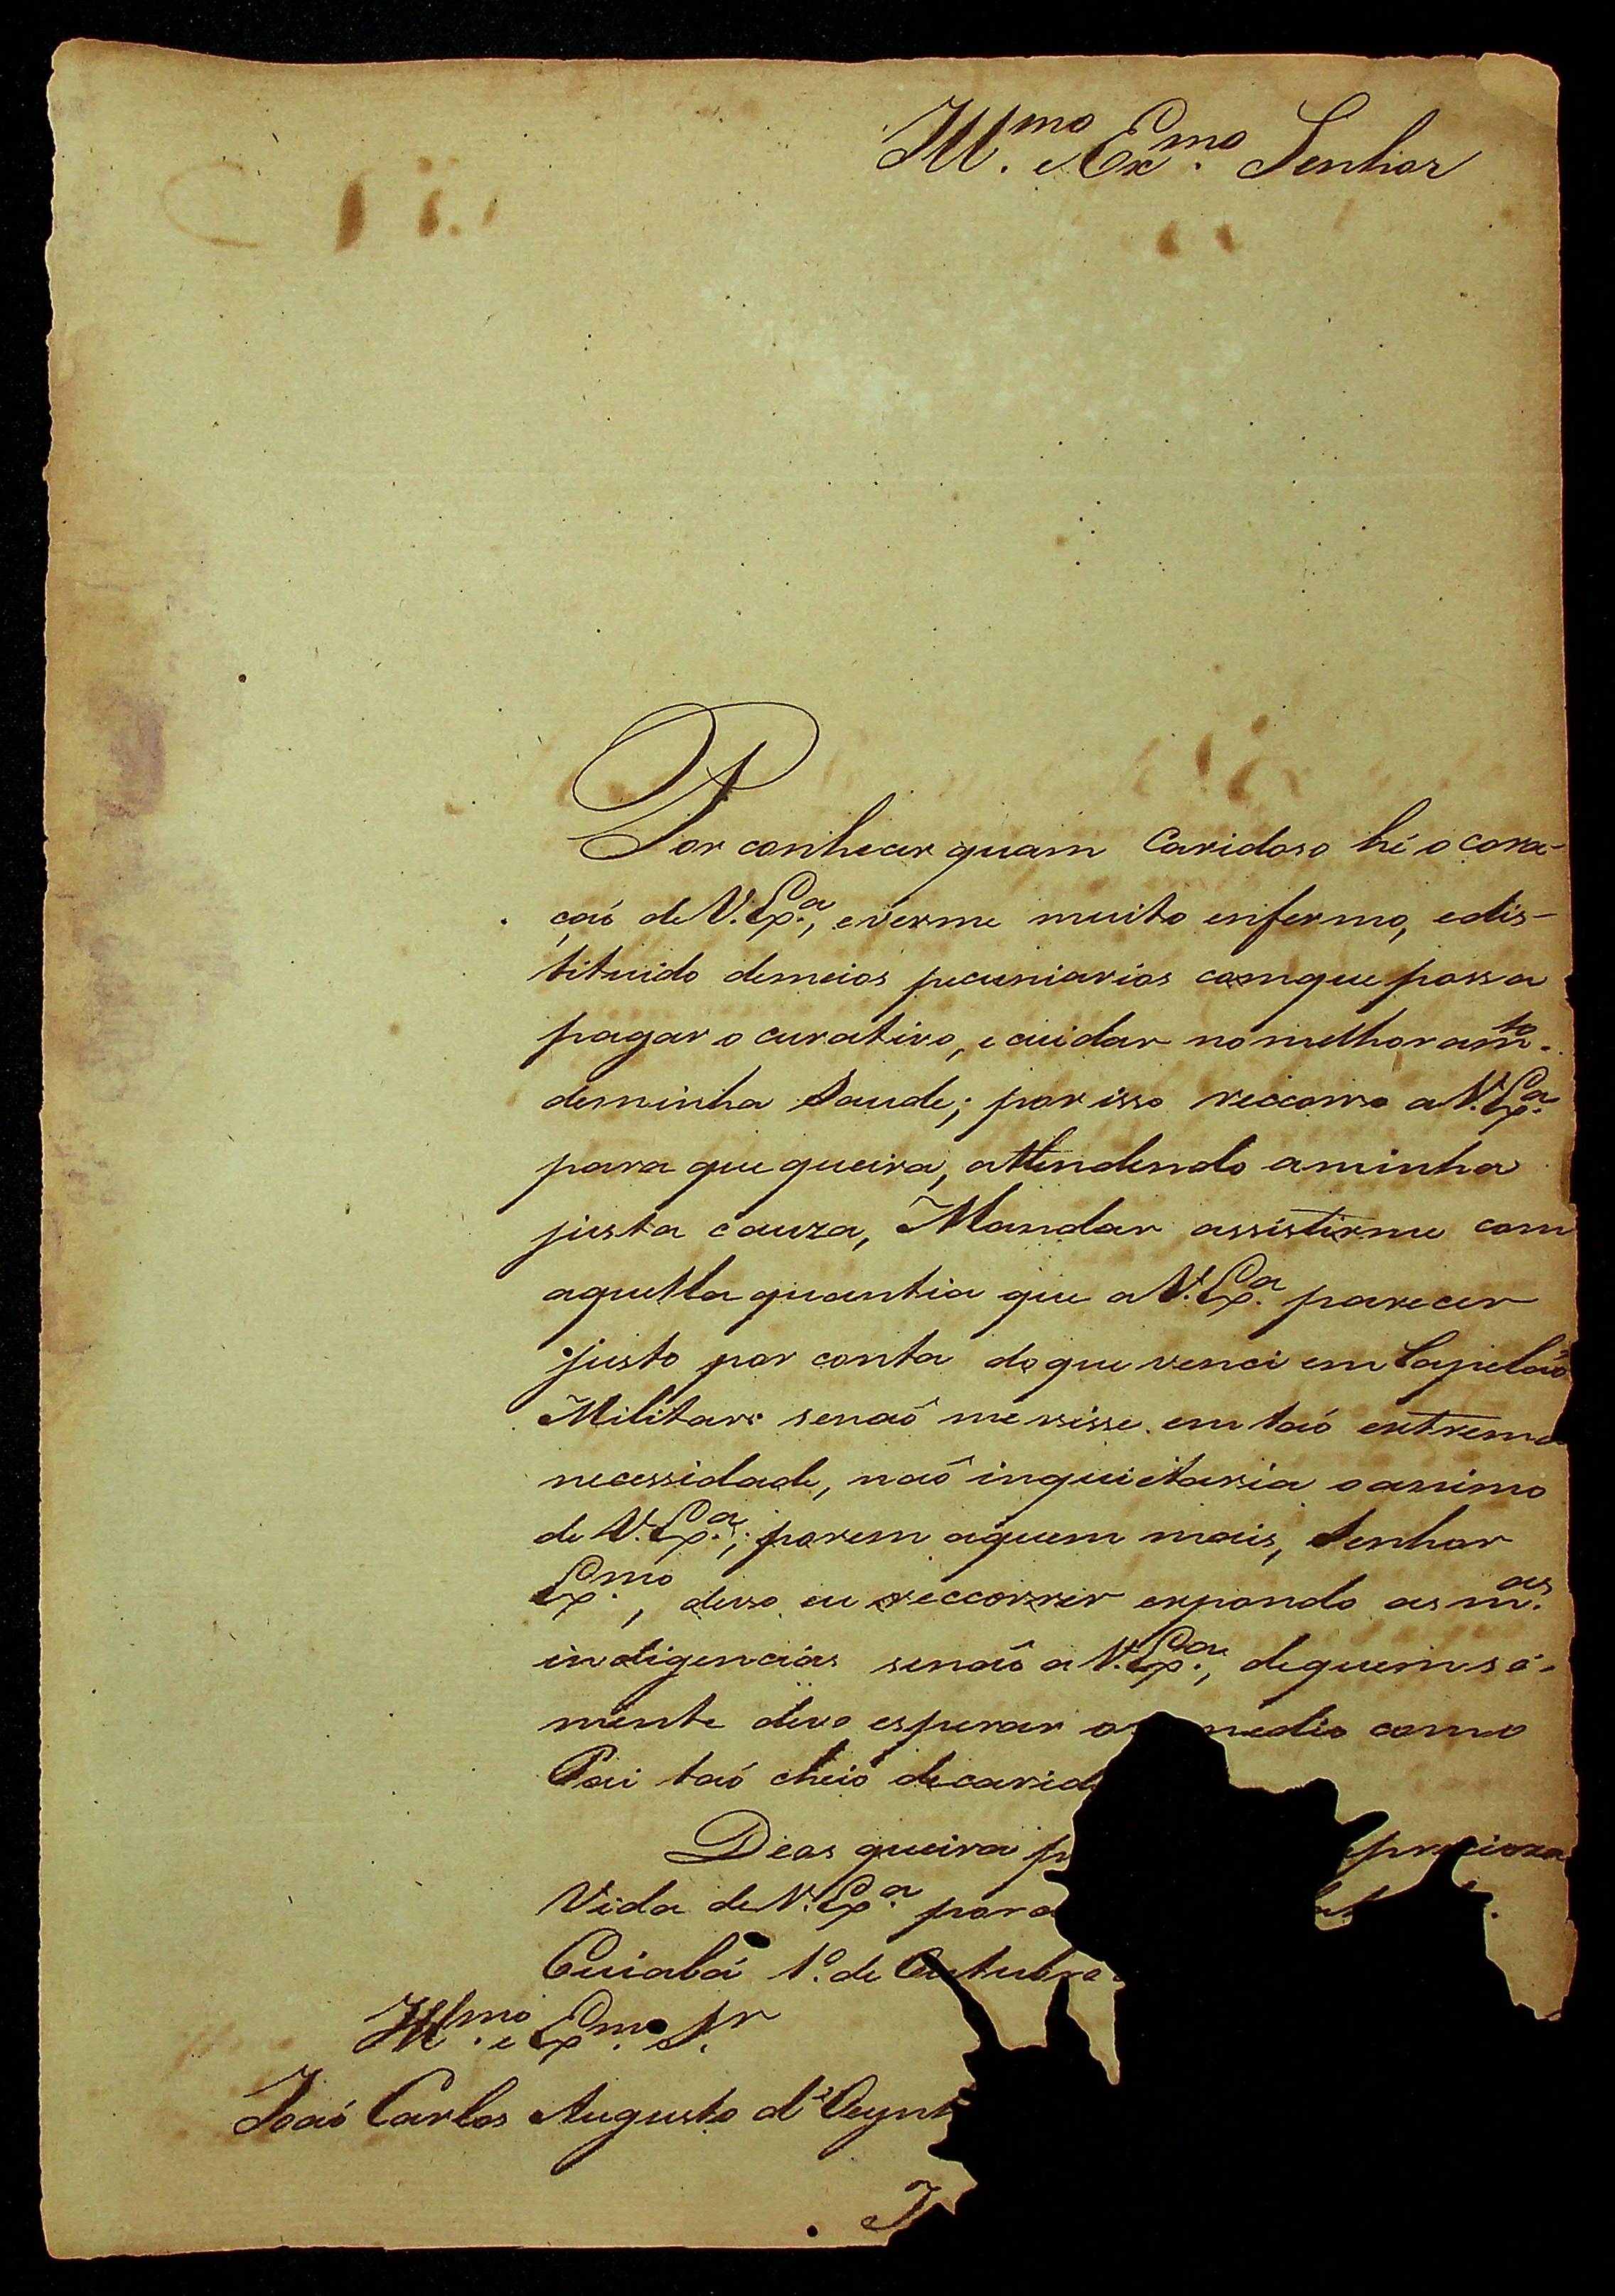 Ill.mo e Ex.mo Senhor
Por conhecer quam Caridoso hé o cora-
çaõ de V. Ex.a, e verme muito enfermo, e dis-
tituido de meios pecuniarios com que possa
pagar o curativo, e cuidar no melhoram.to
de minha Saude; por isso reccorro a V. Ex.a
para que queira, attendendo a minha
justa cauza, Mandar assistirme com
aquella quantia que a V. Ex.a parecer
justo por conta do que venci em Capelaõ
Militar: senaõ me visse em taõ extrema
necessidade, naõ inquietaria o animo
de V. Ex.a; porem aquem mais, Senhor
Ex.mo, devo eu reccorrer expondo as m.as
indigencias senaõ a V. Ex.a, de quem só-
mente devo esperar o medio como
Pai taõ cheio de carid
Deos queira p precioza
Vida de V. Ex.a para
Cuiabá 1.o de Outubro
Ill.mo e Ex.mo S.r
Joaõ Carlos Augusto d'Oeyn